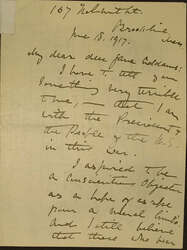 167
Brookline
Mass
June 18. 1917.
My dear dear Jane Addams:
I have to tell you
something very terrible
to me, — that I am
with the President &
the People of the U.S.
in this war.
I aspired to be
a conscientious Objector
as a hope of escape
from a moral
and I still believe
that those who